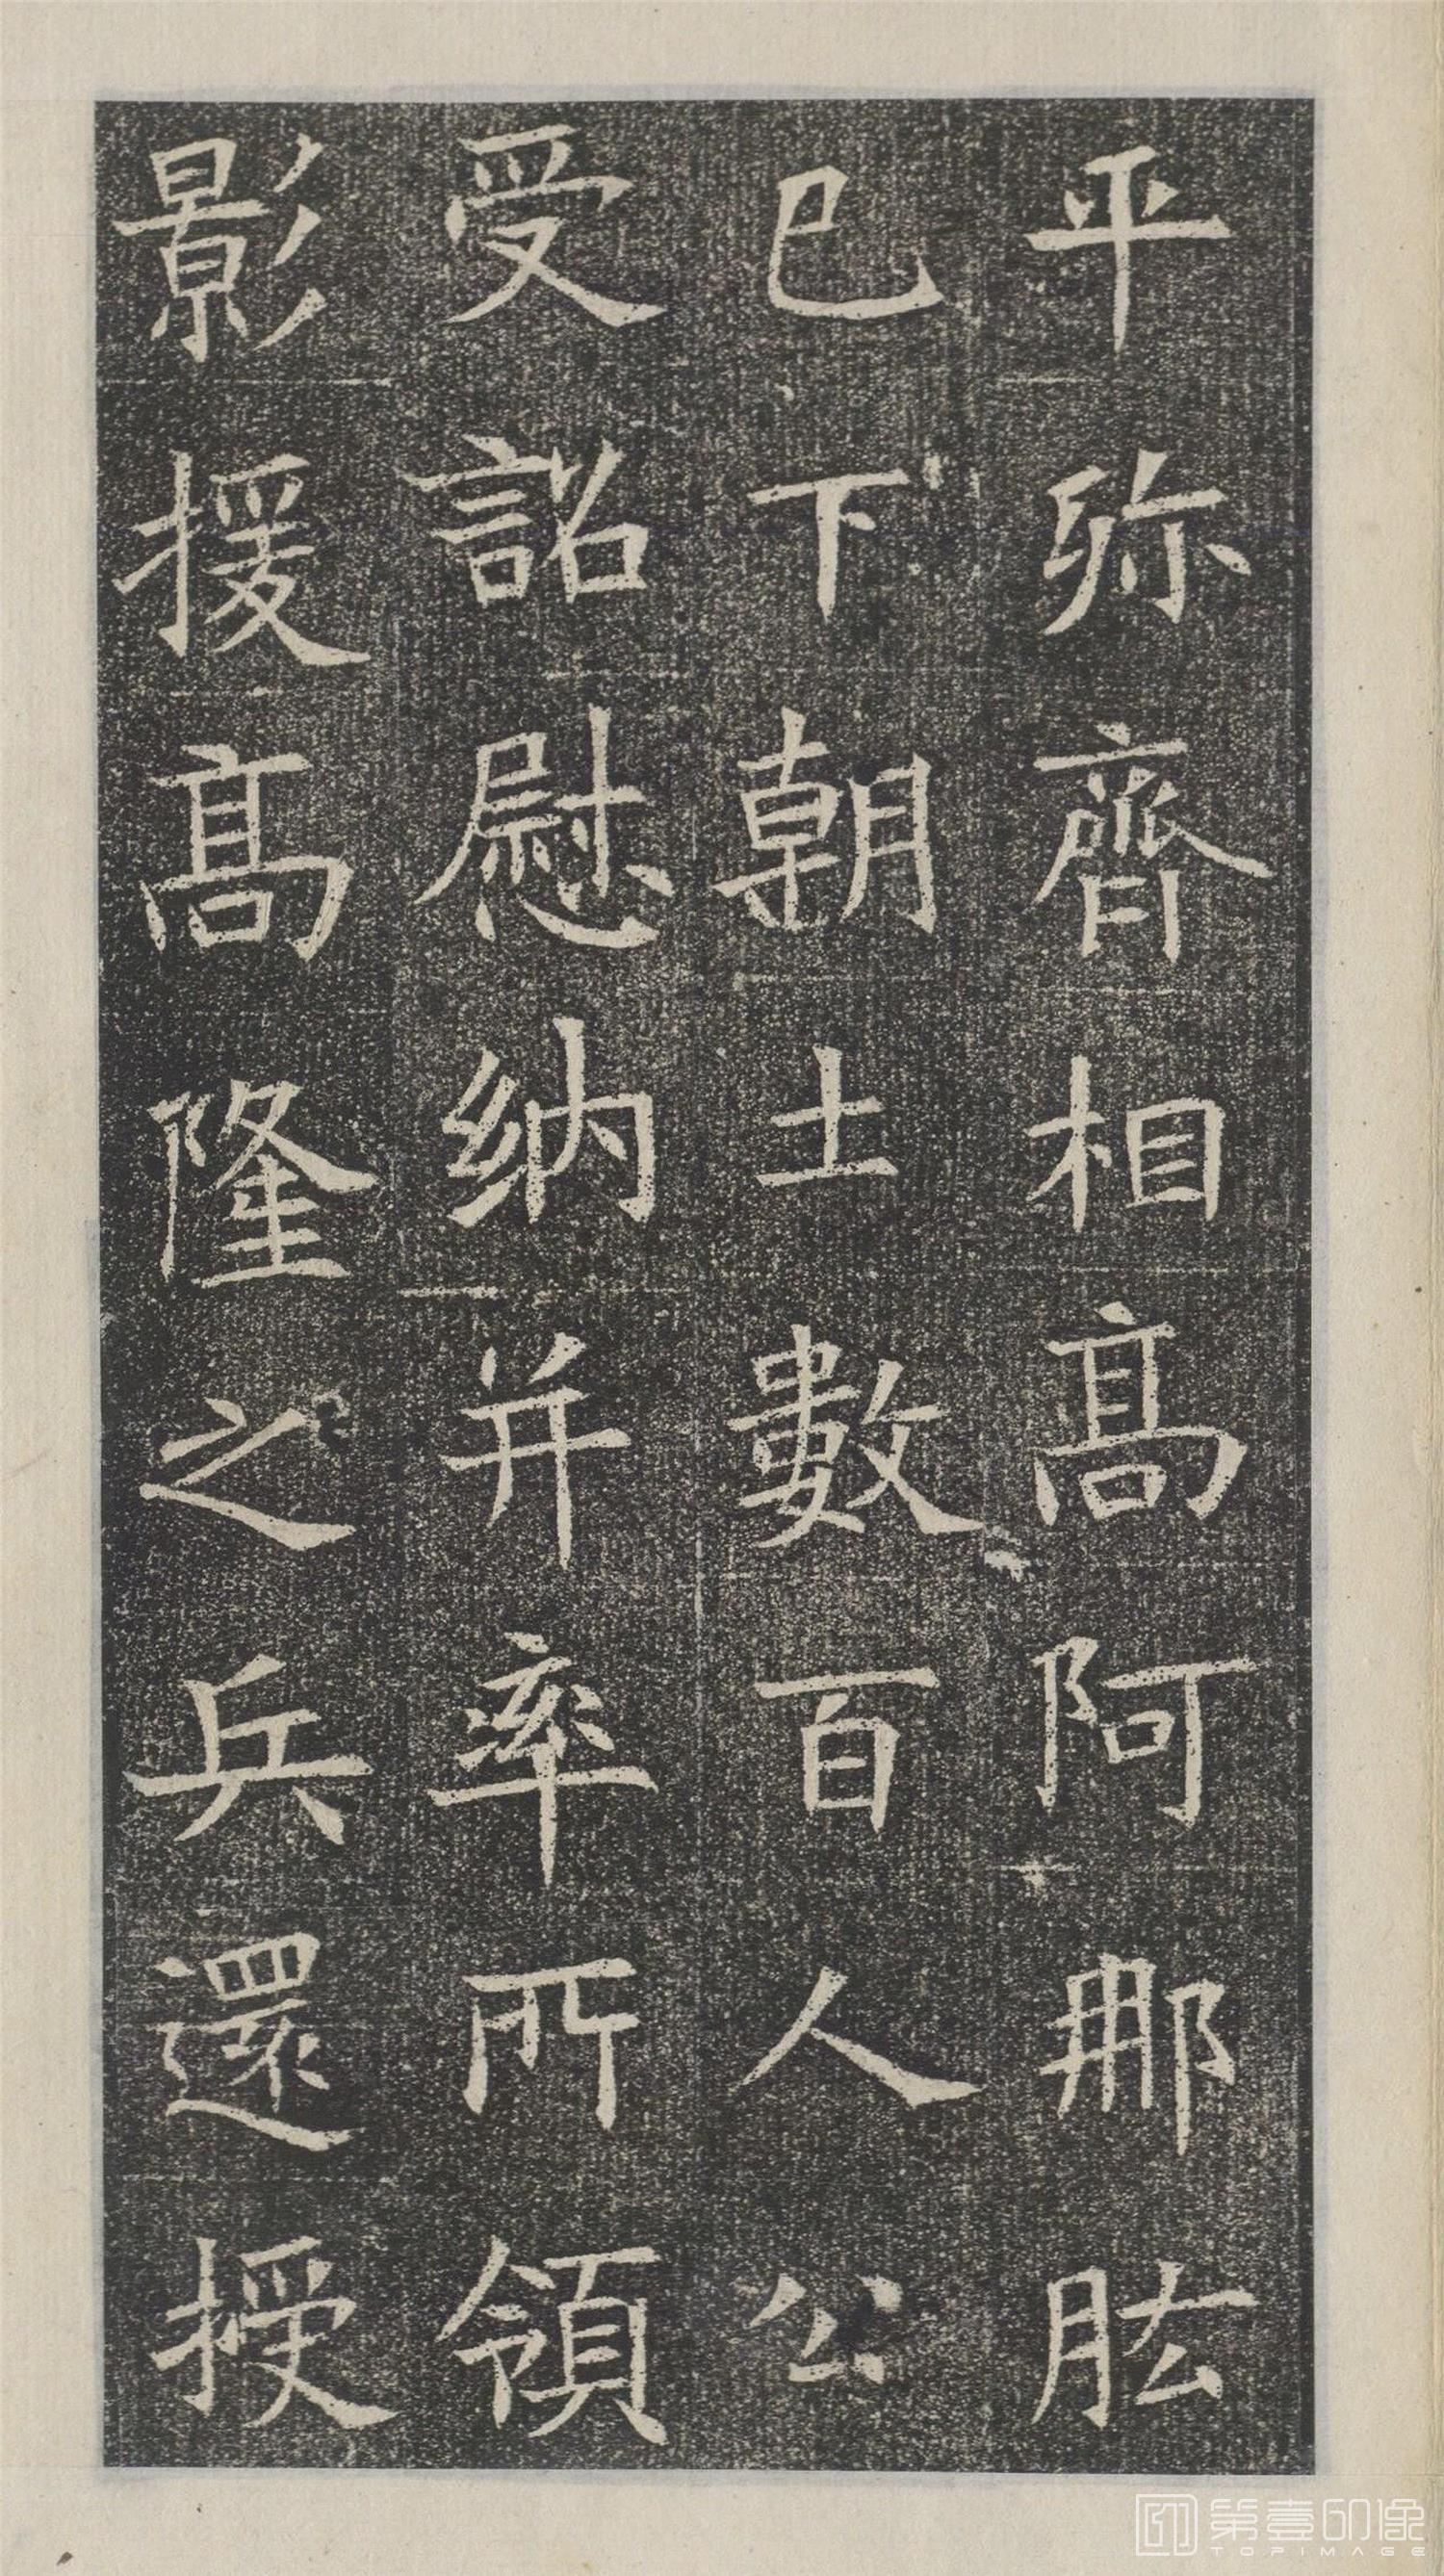 平弥齊相髙阿那肱
已下朝士數百人公
受詔慰納并率所領
影援髙隆之兵還授
第壹印像
TOPIMAGE